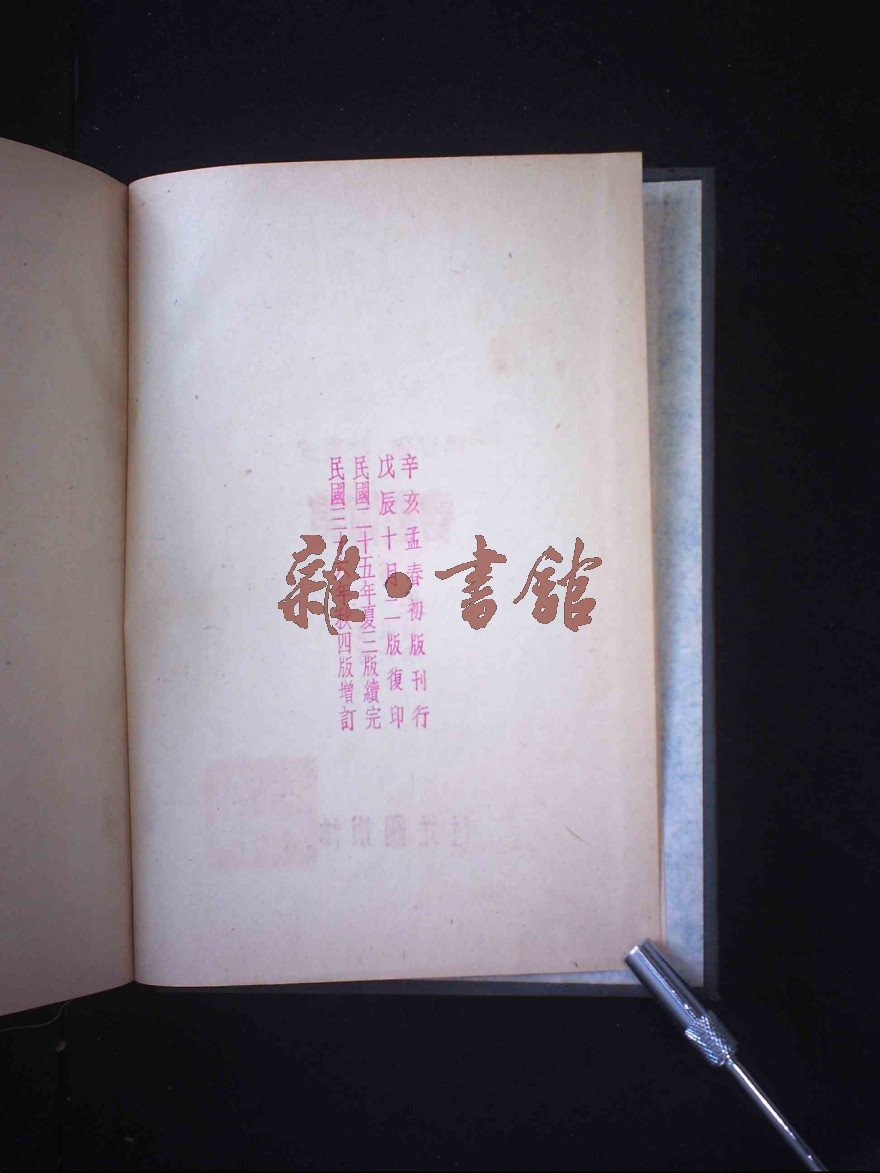 辛亥孟春初版刊行
戊辰十月二版復印
民國二十五年夏三版續完
民國三十年秋四版增訂
雜·書館